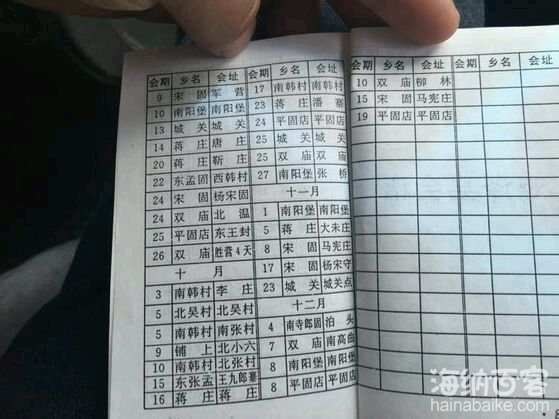 会期 乡名 会址
9 宋固 军营
10 南阳堡 南阳堡
13 城关 城关
14 蒋庄 唐庄
20 蒋庄 靳庄
22 东孟固 西韩村
24 宋固 杨宋固
24 双庙 北温
25 平固店 东王封
26 双庙 胜营4天
十月
3 南韩村 李庄
5 北吴村 北吴村
5 南韩村 南张村
9 铺上 北小六
10 南韩村 北张村
15 东张孟 王九郎寨
16 蒋庄 蒋庄
会期 乡名 会址
17 南韩村 南韩村
23 蒋庄 潘寨
24 平固店 平固店
25 城关 城关
25 双庙 双庙
27 南阳堡 张桥
十一月
1 南阳堡 南阳堡
5 蒋庄 大未庄
8 宋固 马宪庄
17 宋固 杨宋守
23 城关 城关点
十二月
4 南寺郎固 泊头
7 双庙 南高曲
8 南阳堡 南阳堡
8 平固店 平固店
会期 乡名 会址 会期 乡名 会址
10 双庙 柳林
15 宋固 马宪庄
19 平固店 平固店
海纳百客
hainabaike.com